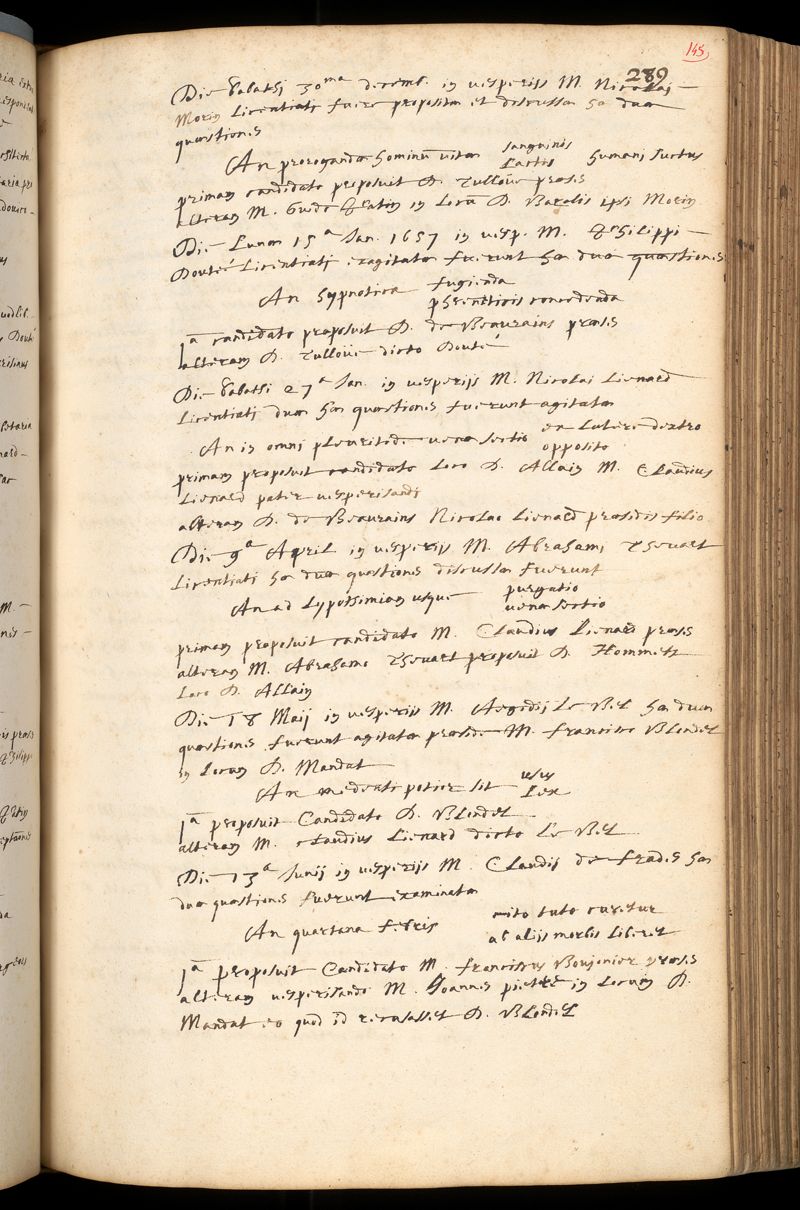 145
289
Die Sabathi 30ma decemb. in vesperiis M. Nicolai
Morin Licentiati fuere propositæ et discussæ hæ duæ
quæstiones
An proroganda hominū vita sanguinis
Lactis humani suctus
primam candidato proposuit D. Tulloüe præses
alteram M. Guido Patin in Locū D. Baralis ipsi Morin
Die Lunæ 15a Jan. 1657 in vesp. M. Philippi
Douté Licentiati exagitatæ fuerunt hæ duæ quæstiones
An hypnotica fugienda
phreneticis concedenda
1a candidato proposuit D. de Beaurains præses
alteram D. Tulloüe dicto Douté
Die Sabathi 27a Jan. in vesperiis M. Nicolai Lienard
Licentiati duæ hæ quæstiones fuerunt agitatæ
An in omni pleuritide venæ sectio ex Latere dextro
opposito
primam proposuit candidato Loco D. Allain M. Claudius
Lienard pater vesperisandi
alteram D. de Beaurains Nicolao Lienard præsidis filio
Die 9a April in vesperiis M. Abrahami Thevart
Licentiati hæ duæ quæstiones discussæ fuerunt
An ad Lypothimiam usque purgatio
venæ sectio
primam proposuit candidato M. Claudius Lienard præses
alteram M. Abrahamo Thevart proposuit D. Hommetz
Loco D. Allain
Die 18 Maij in vesperiis M. Aegidij Le Bel hæ duæ
quæstiones fuerunt agitatæ præside M. Francisco Blondel
in Locum D. Mandat
An medicati potior sit usus
Lex
1a proposuit Candidato D. Blondel
alteram M. Claudius Lienard dicto Le Bel
Die 13a Junij in vesperiis M. Claudij de Frades hæ
duæ quæstiones fuerunt examinatæ
An quartana febris cito tuto curetur
ab alijs morbis Liberet
1a proposuit Candidato M. Franciscus Boujonier præses
alteram vesperisando M. Joannes pietre in Locum D.
Mandat eo quod id recusasset D. Blondel